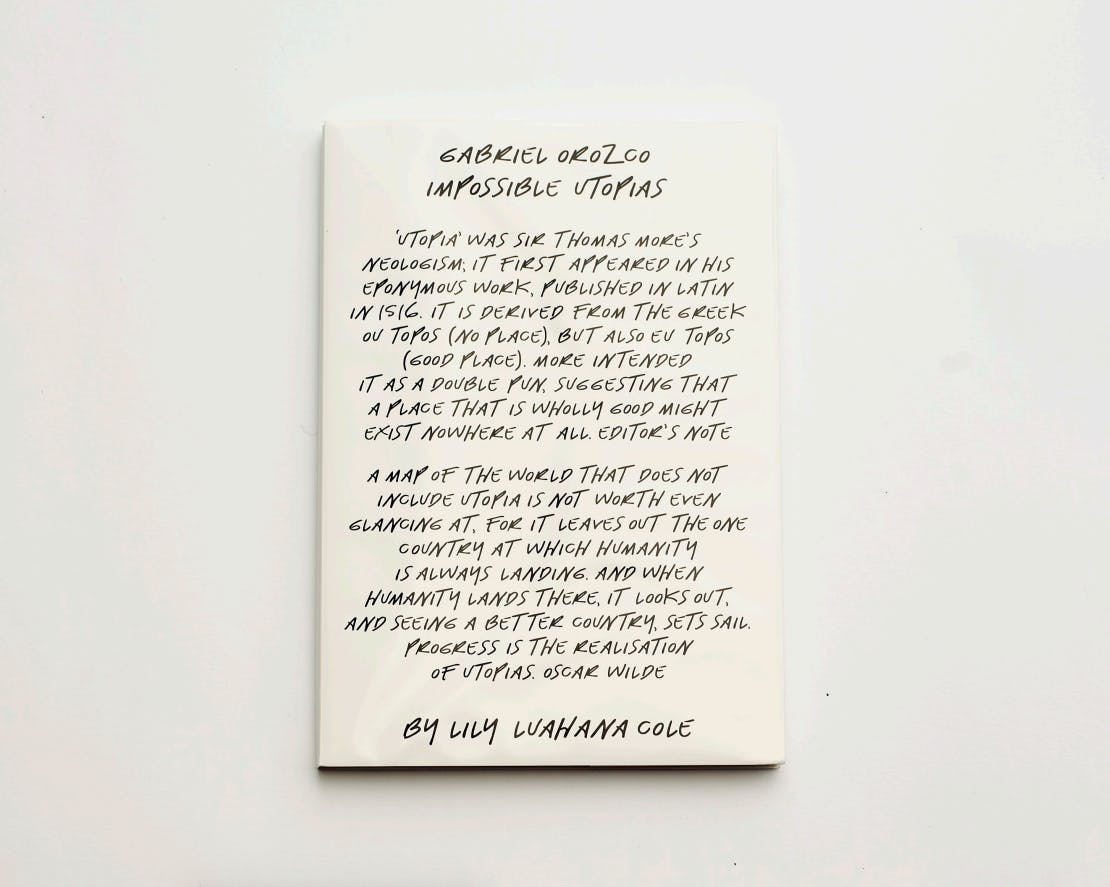 GABRIEL OROZCO
IMPOSSIBLE UTOPIAS
'UTOPIA' WAS SIR THOMAS MORE'S
NEOLOGISM; IT FIRST APPEARED IN HIS
EPONYMOUS WORK, PUBLISHED IN LATIN
IN 1516. IT IS DERIVED FROM THE GREEK
OU TOPOS (NO PLACE), BUT ALSO EU TOPOS
(GOOD PLACE). MORE INTENDED
IT AS A DOUBLE PUN, SUGGESTING THAT
A PLACE THAT IS WHOLLY GOOD MIGHT
EXIST NOWHERE AT ALL. EDITOR'S NOTE
A MAP OF THE WORLD THAT DOES NOT
INCLUDE UTOPIA IS NOT WORTH EVEN
GLANCING AT, FOR IT LEAVES OUT THE ONE
COUNTRY AT WHICH HUMANITY
IS ALWAYS LANDING. AND WHEN
HUMANITY LANDS THERE, IT LOOKS OUT,
AND SEEING A BETTER COUNTRY, SETS SAIL.
PROGRESS IS THE REALISATION
OF UTOPIAS. OSCAR WILDE
BY LILY LUAHANA COLE